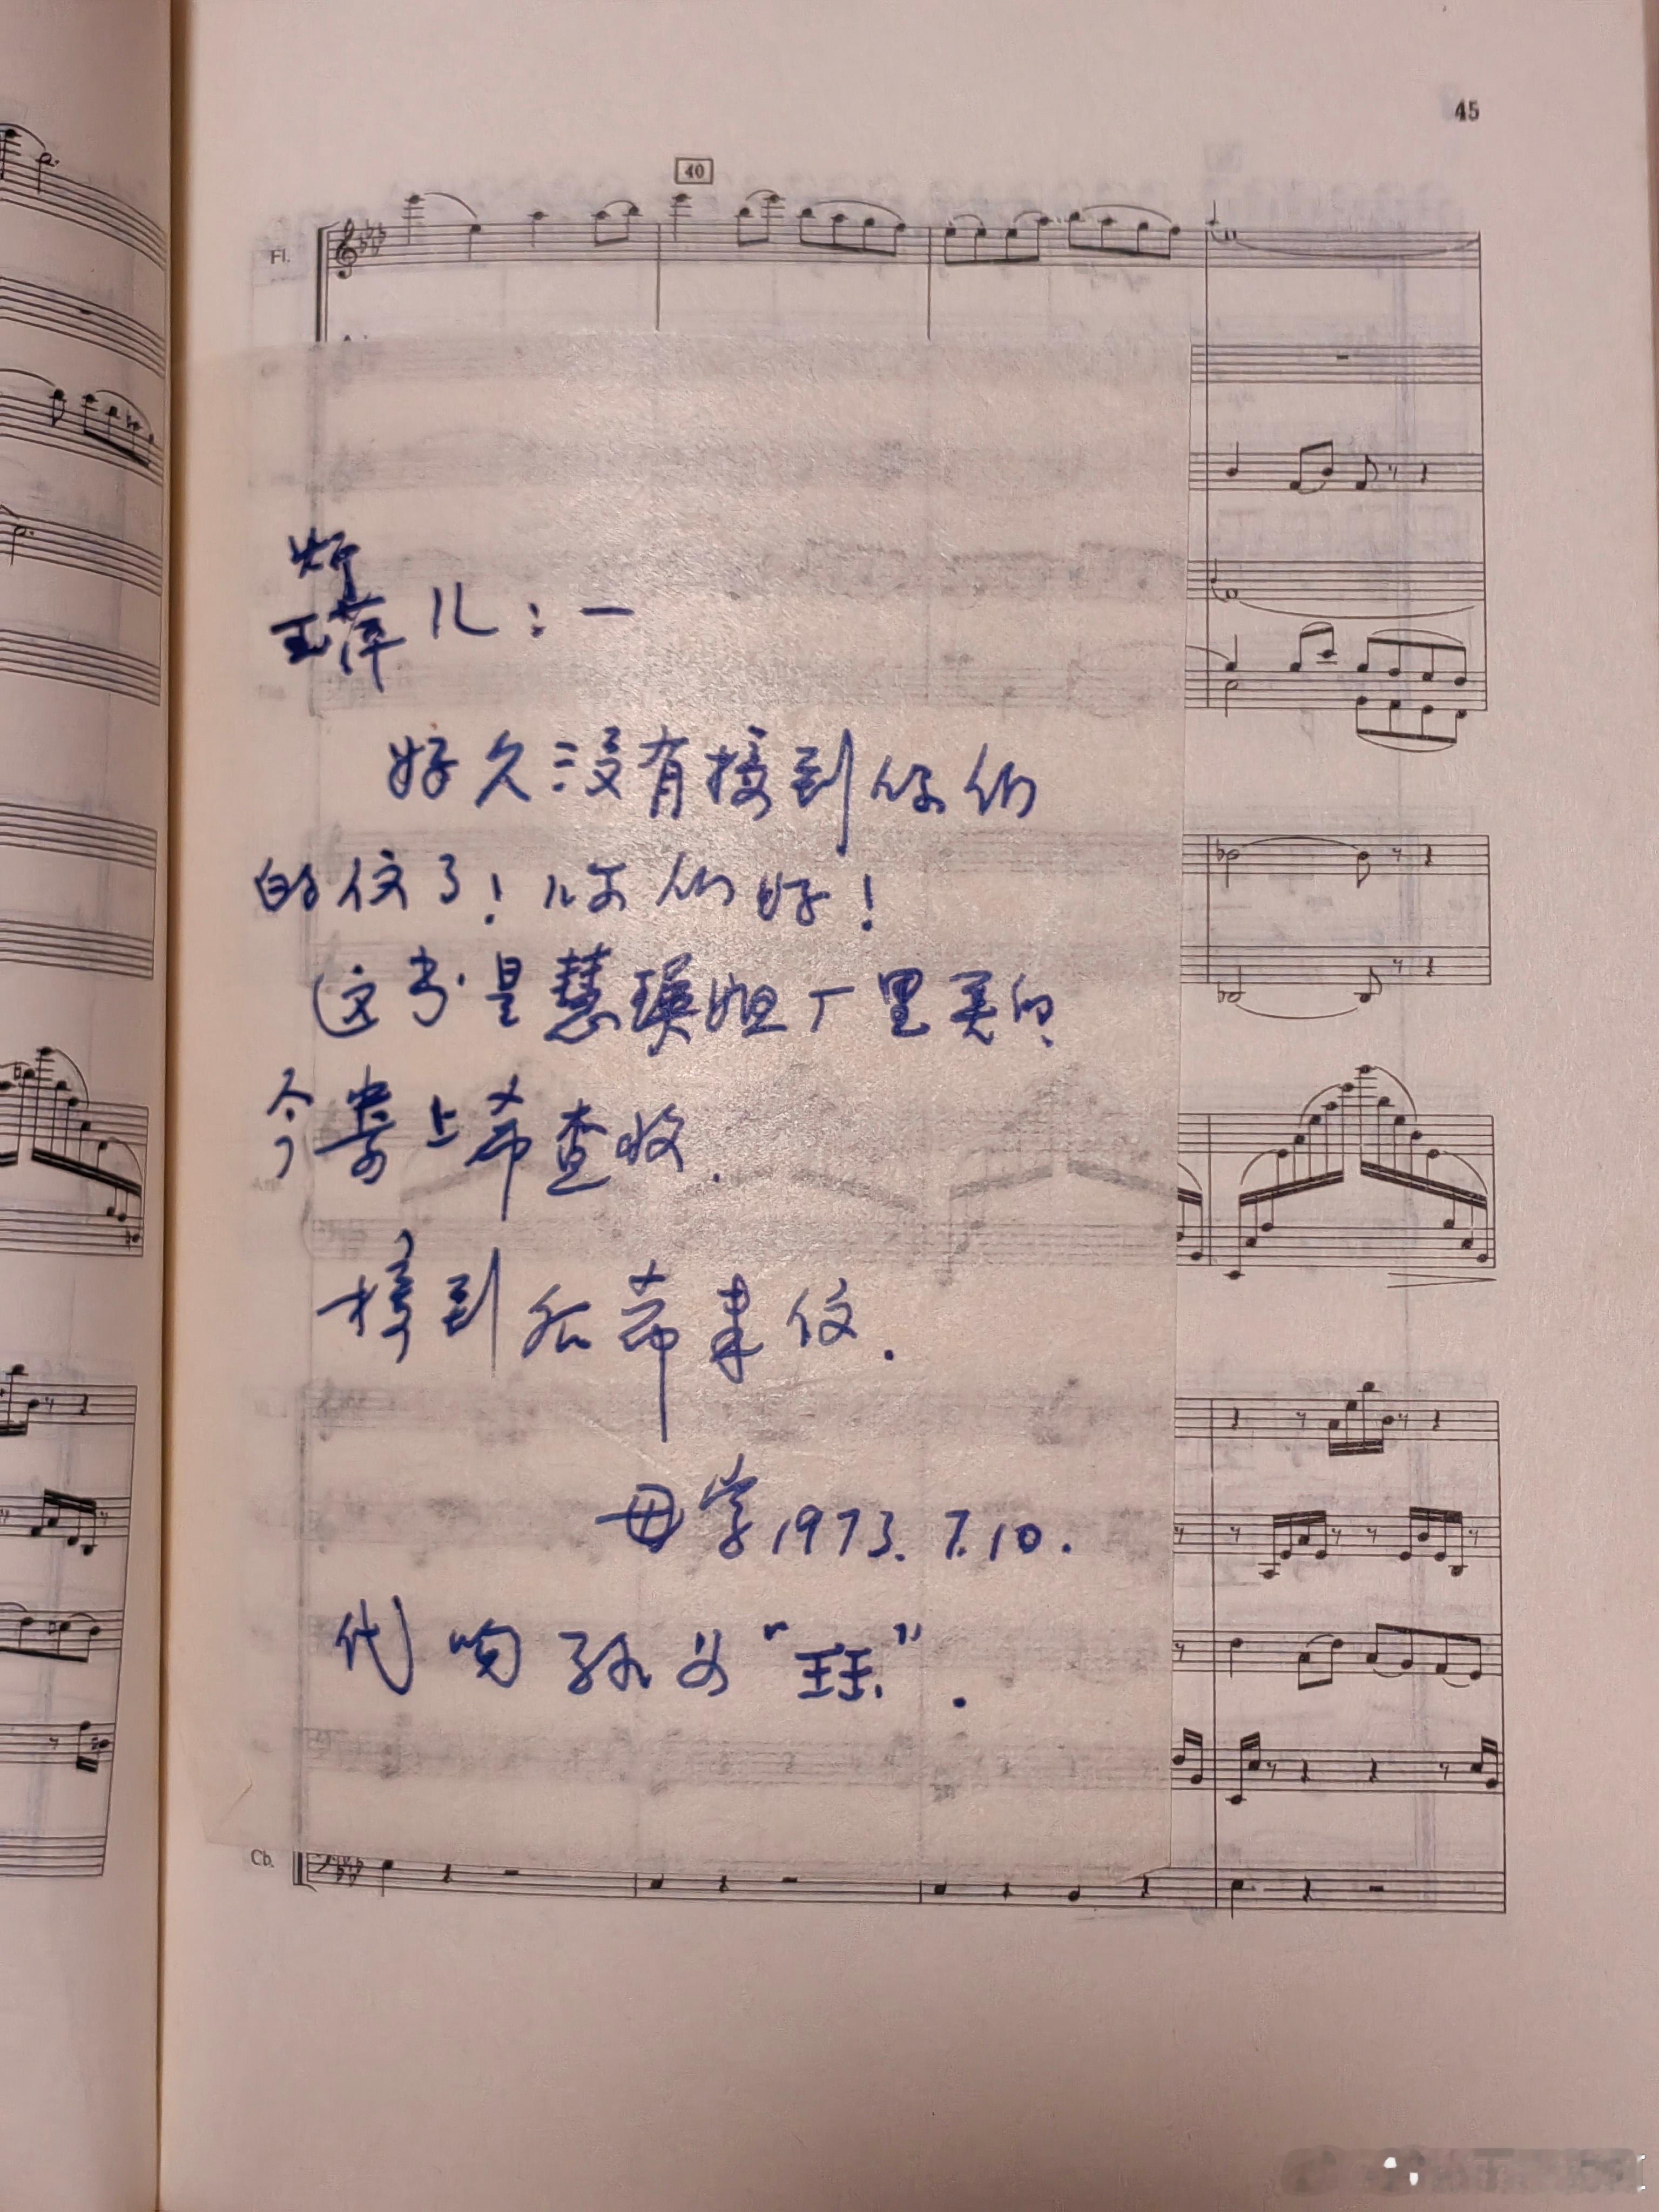 45
40
Fl.
儿：一
好久没有接到你们
的信了！你们好！
这书是慧瑛姐厂里买的.
今寄上希查收.
接到后希来信.
母字1973.7.10.
代吻孙女“珏”.
Cb.